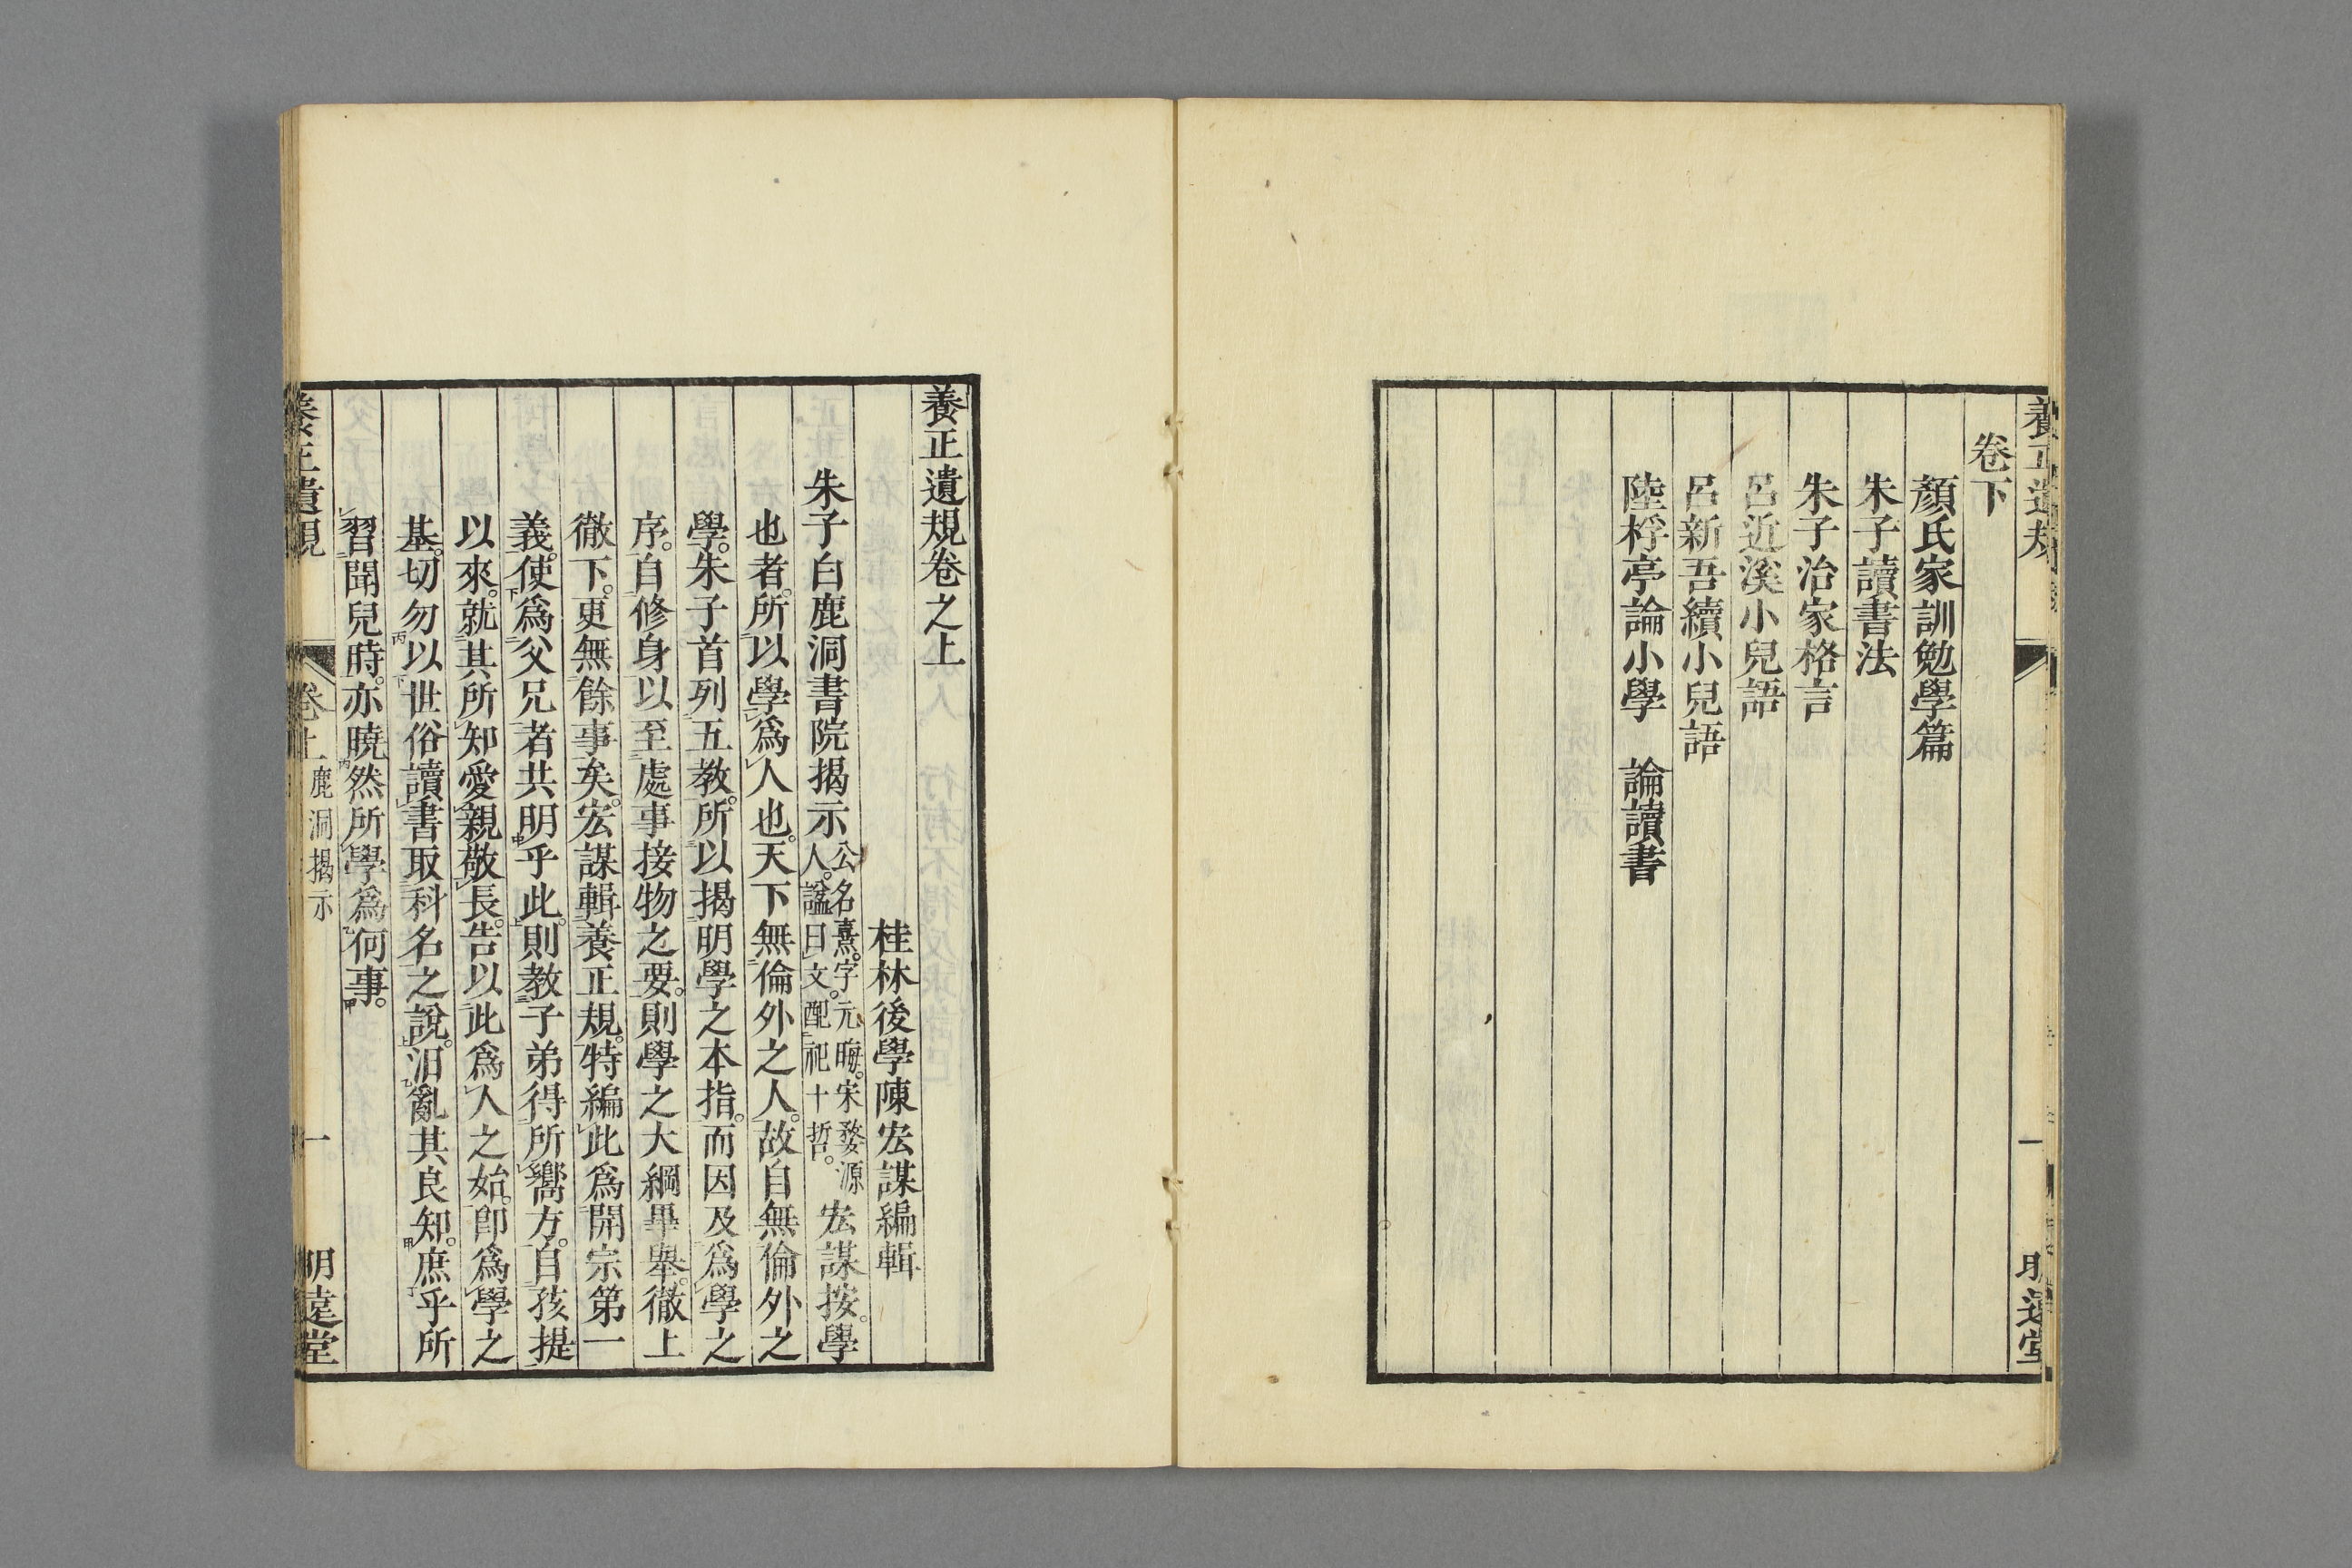 養正遺規
一
明遠堂
卷下
顏氏家訓勉學篇
朱子讀書法
朱子治家格言
呂近溪小兒語
呂新吾續小兒語
陸桴亭論小學　論讀書
養正遺規卷之上
桂林後學陳宏謀編輯
朱子白鹿洞書院揭示公名熹。字元晦。宋婺源人。諡曰文。配祀十哲。宏謀按。學
也者。所以學爲人也。天下無倫外之人。故自無倫外之
學。朱子首列五教。所以揭明學之本指。而因及爲學之
序。自修身以至處事接物之要。則學之大綱畢舉。徹上
徹下。更無餘事矣。宏謀輯養正規。特編此爲開宗第一
義。使爲父兄者共明乎此。則教子弟得所嚮方。自孩提
以來。就其所知愛親敬長。告以此爲人之始。卽爲學之
基。切勿以世俗讀書取科名之說。汨亂其良知。庶乎所
習聞兒時。亦曉然所學爲何事。
養正遺規
卷上
鹿洞揭示
一
明遠堂